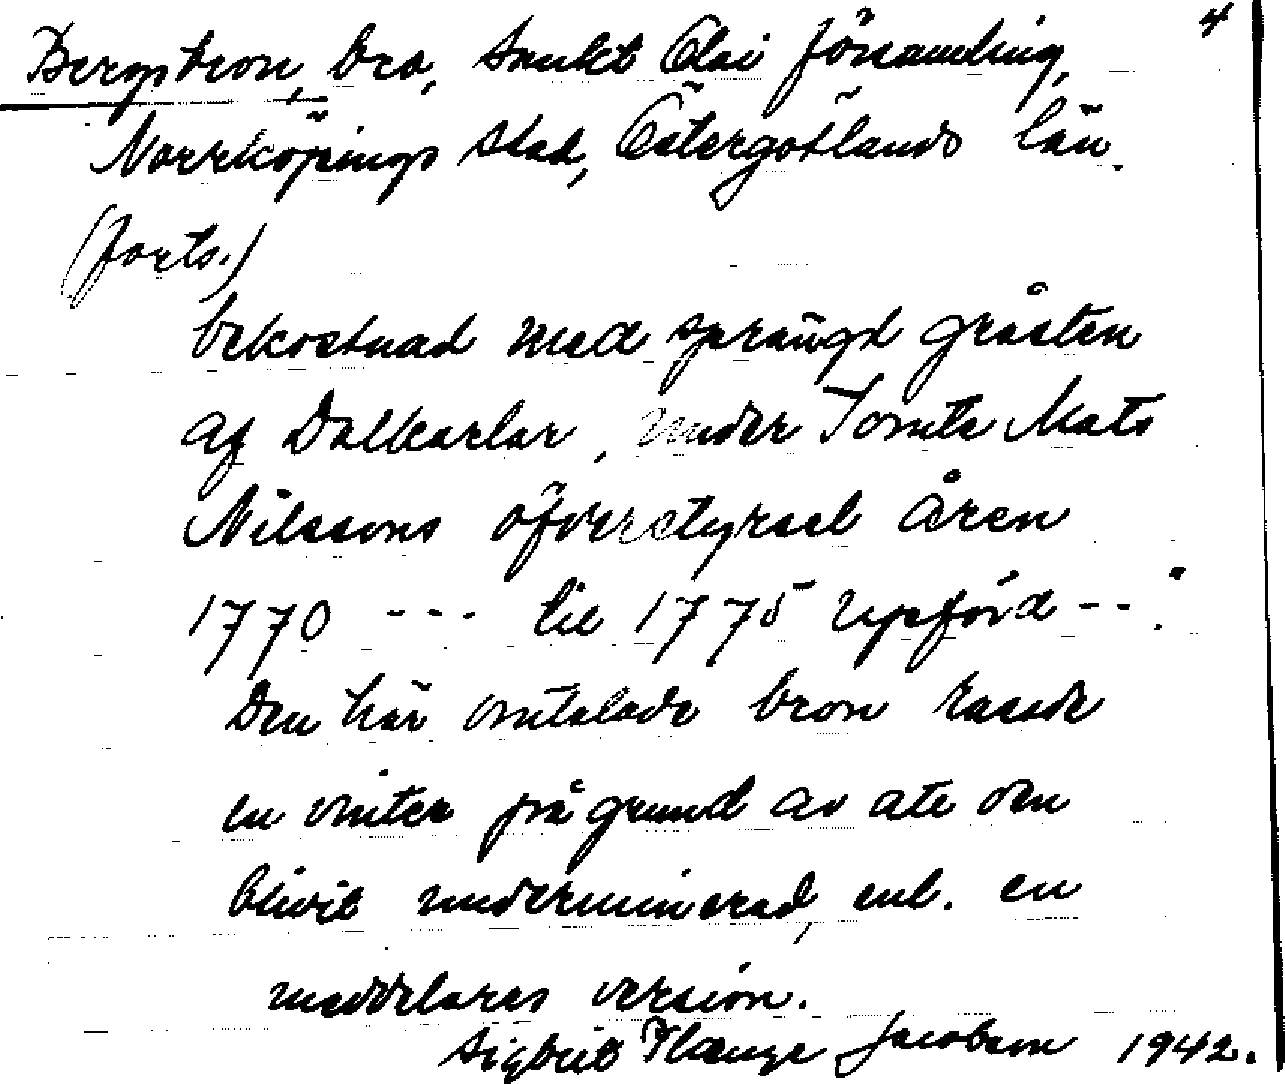 4
Bergsbron, bro, Sankt Olai församling,
Norrköpings stad, Östergötlands län.
(forts.)
bekostnad med sprängd gråsten
af Dalkarlar, under Tomte Mats
Nilssons öfverstyrsel åren
1770 --- til 1775 upförd --."
Den här omtalade bron rasade
en vinter på grund av att den
blivit underminerad, enl. en
meddelares version.
Sigbrit Plænge Jacobson 1942.